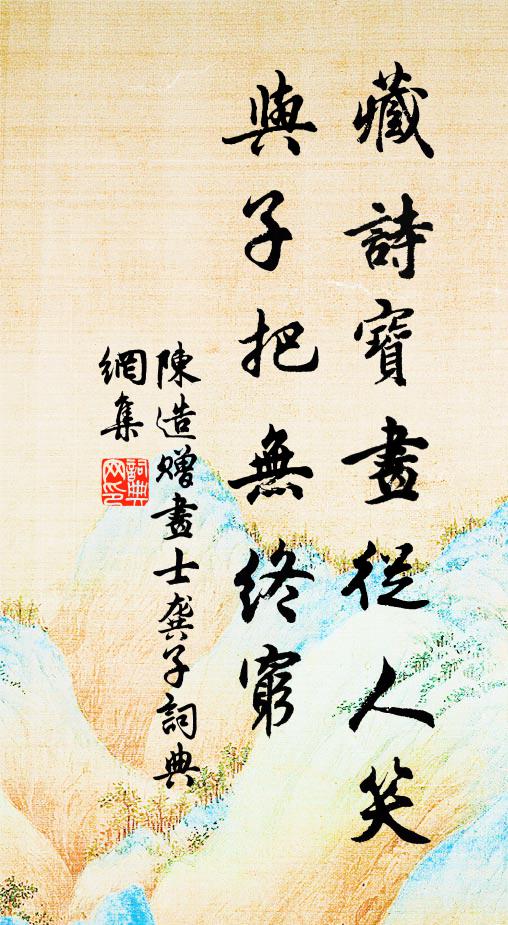 藏詩寶畫從人笑
與子把無終窮
陳造贈畫士龔子詞典
網集
詞典
网印